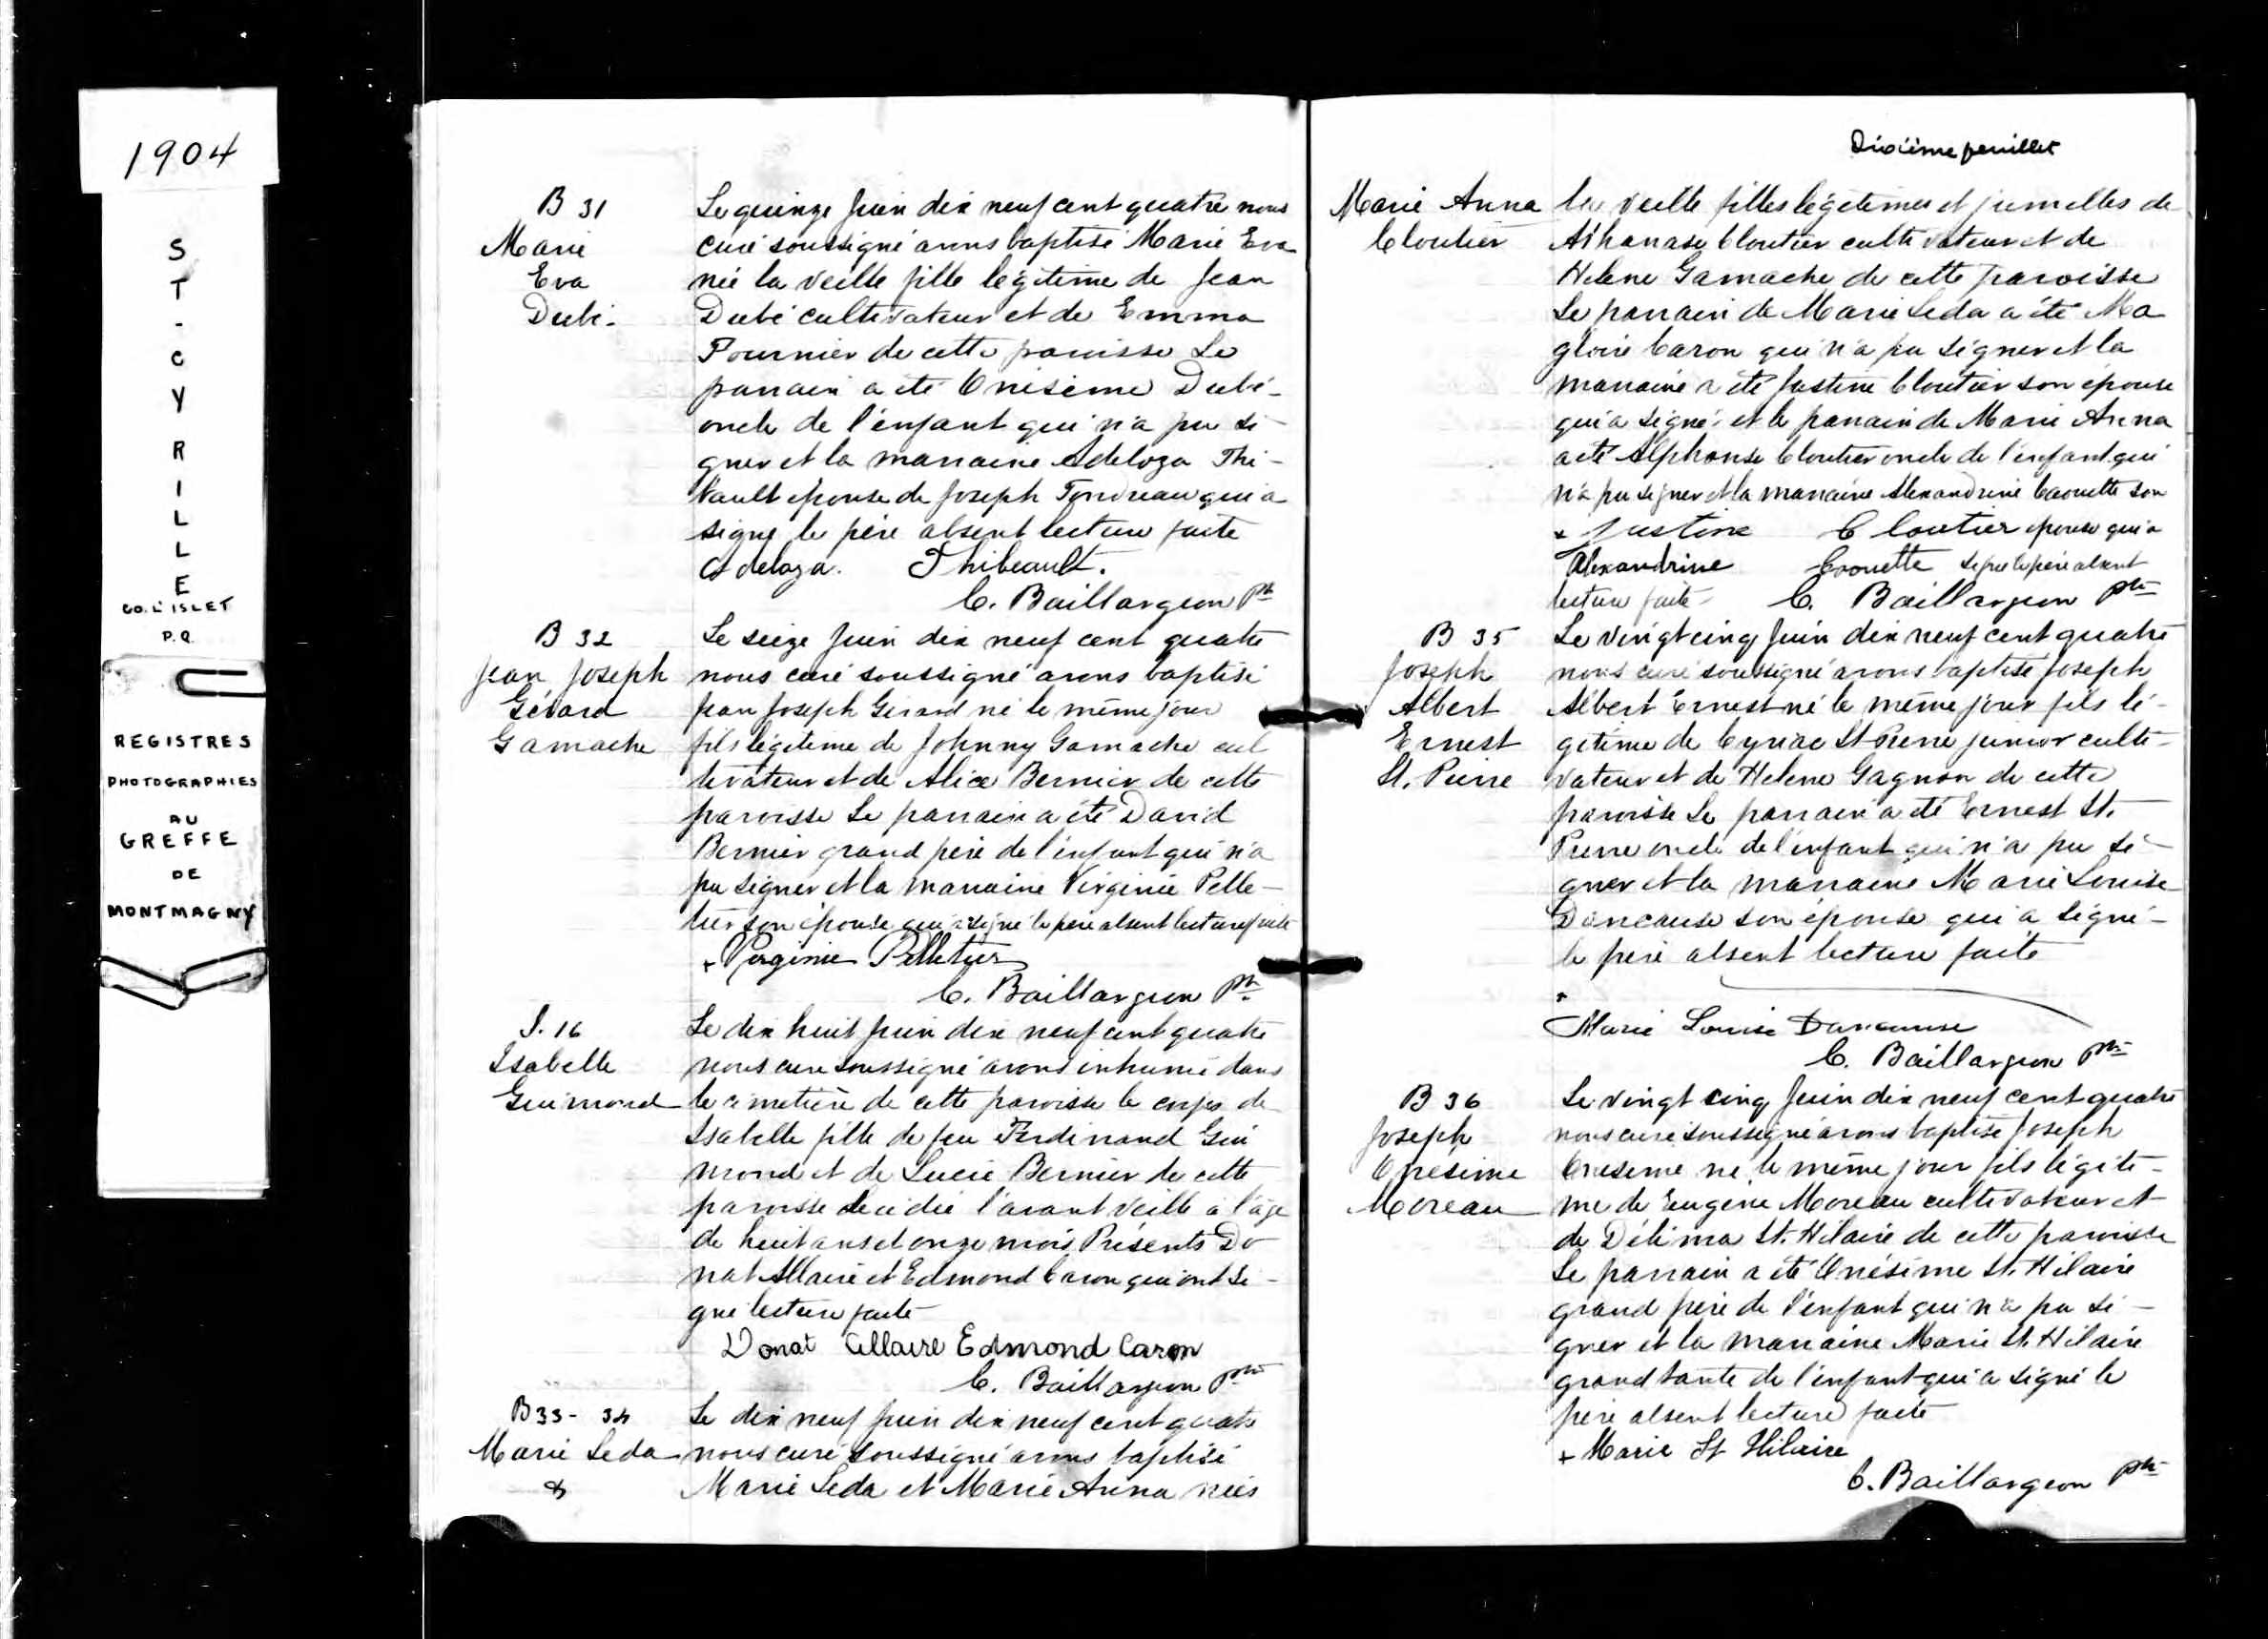 1904
ST-CYRILLE
CO. L'ISLET
P.Q.
REGISTRES
PHOTOGRAPHIES
AU
GREFFE
DE
MONTMAGNY
B 31
Marie
Eva
Dubé.
Le quinze Juin dix neuf cent quatre nous
curé soussigné avons baptisé Marie Eva
née la veille fille légitime de Jean
Dubé cultivateur et de Emma
Fournier de cette paroisse Le
parrain a été Onésime Dubé-
oncle de l'enfant qui n'a pu si-
gner et la marraine Adeloza Thi-
bault épouse de Joseph Tondreau qui a
signé le père absent lecture faite
Adeloza. Thibeault.
C. Baillargeon Ptre
B 32
Jean Joseph
Gérard
Gamache
Le seize Juin dix neuf cent quatre
nous curé soussigné avons baptisé
Jean Joseph Gérard né le même jour
fils légitime de Johnny Gamache cul
tivateur et de Alice Bernier de cette
paroisse Le parrain a été David
Bernier grand père de l'enfant qui n'a
pu signer et la marraine Virginie Pelle-
tier son épouse qui a signé le père absent lecture faite
+ Virginie Pelletier
C. Baillargeon Ptre
S. 16
Isabelle
Guimond
Le dix huit juin dix neuf cent quatre
nous curé soussigné avons inhumé dans
le cimetière de cette paroisse le corps de
Isabelle fille de feu Ferdinand Gui
mond et de Lucie Bernier de cette
paroisse décédée l'avant veille à l'âge
de huit ans et onze mois Présents Do
nat Allaire et Edmond Caron qui ont si-
gné lecture faite
Donat Allaire Edmond Caron
C. Baillargeon Ptre
B 33 - 34
Marie Leda
&
Le dix neuf Juin dix neuf cent quatre
nous curé soussigné avons baptisé
Marie Leda et Marie Anna nées
Dixième feuillet
Marie Anna
Cloutier
la veille filles légitimes et jumelles de
Athanase Cloutier cultivateur et de
Helene Gamache de cette paroisse
Le parrain de Marie Leda a été Ma
gloire Caron qui n'a pu signer et la
marraine a été Justine Cloutier son épouse
qui a signé et le parrain de Marie Anna
a été Alphonse Cloutier oncle de l'enfant qui
n'a pu signer et la marraine Alexandrine Caouette son
+ Justine Cloutier épouse qui a
Alexandrine Caouette signé le père absent
lecture faite C. Baillargeon Ptre
B 35
Joseph
Albert
Ernest
St. Pierre
Le vingt cinq Juin dix neuf cent quatre
nous curé soussigné avons baptisé Joseph
Albert Ernest né le même jour fils lé-
gitime de Cyriac St Pierre junior culti-
vateur et de Helene Gagnon de cette
paroisse Le parrain a été Ernest St.
Pierre oncle de l'enfant qui n'a pu si-
gner et la marraine Marie Louise
Dancause son épouse qui a signé-
le père absent lecture faite
+
Marie Louise Dancause
C. Baillargeon Ptre
B 36
Joseph
Onésime
Moreau
Le vingt cinq Juin dix neuf cent quatre
nous curé soussigné avons baptisé Joseph
Onésime né le même jour fils légiti-
me de Eugène Moreau cultivateur et
de Délima St. Hilaire de cette paroisse
Le parrain a été Onésime St. Hilaire
grand père de l'enfant qui n'a pu si-
gner et la marraine Marie St. Hilaire
grand tante de l'enfant qui a signé le
père absent lecture faite
+ Marie St Hilaire
C. Baillargeon Ptre